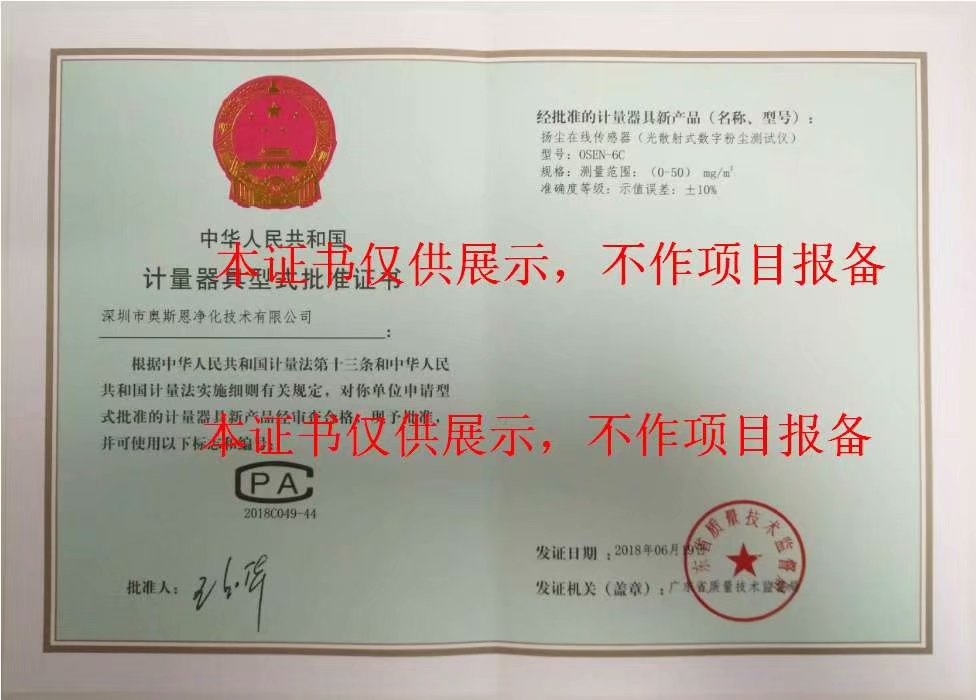 中华人民共和国
计量器具型式批准证书
深圳市奥斯恩净化技术有限公司
:
根据中华人民共和国计量法第十三条和中华人民
共和国计量法实施细则有关规定，对你单位申请型
式批准的计量器具新产品经审查合格，现予批准，
并可使用以下标志和编号:
CPA
2018C049-44
批准人:
经批准的计量器具新产品（名称、型号）:
扬尘在线传感器（光散射式数字粉尘测试仪）
型号: OSEN-6C
规格: 测量范围: （0-50） mg/m³
准确度等级: 示值误差: ±10%
本证书仅供展示，不作项目报备
本证书仅供展示，不作项目报备
发证日期: 2018年06月19日
发证机关（盖章）: 广东省质量技术监督局
东省质量技术监督